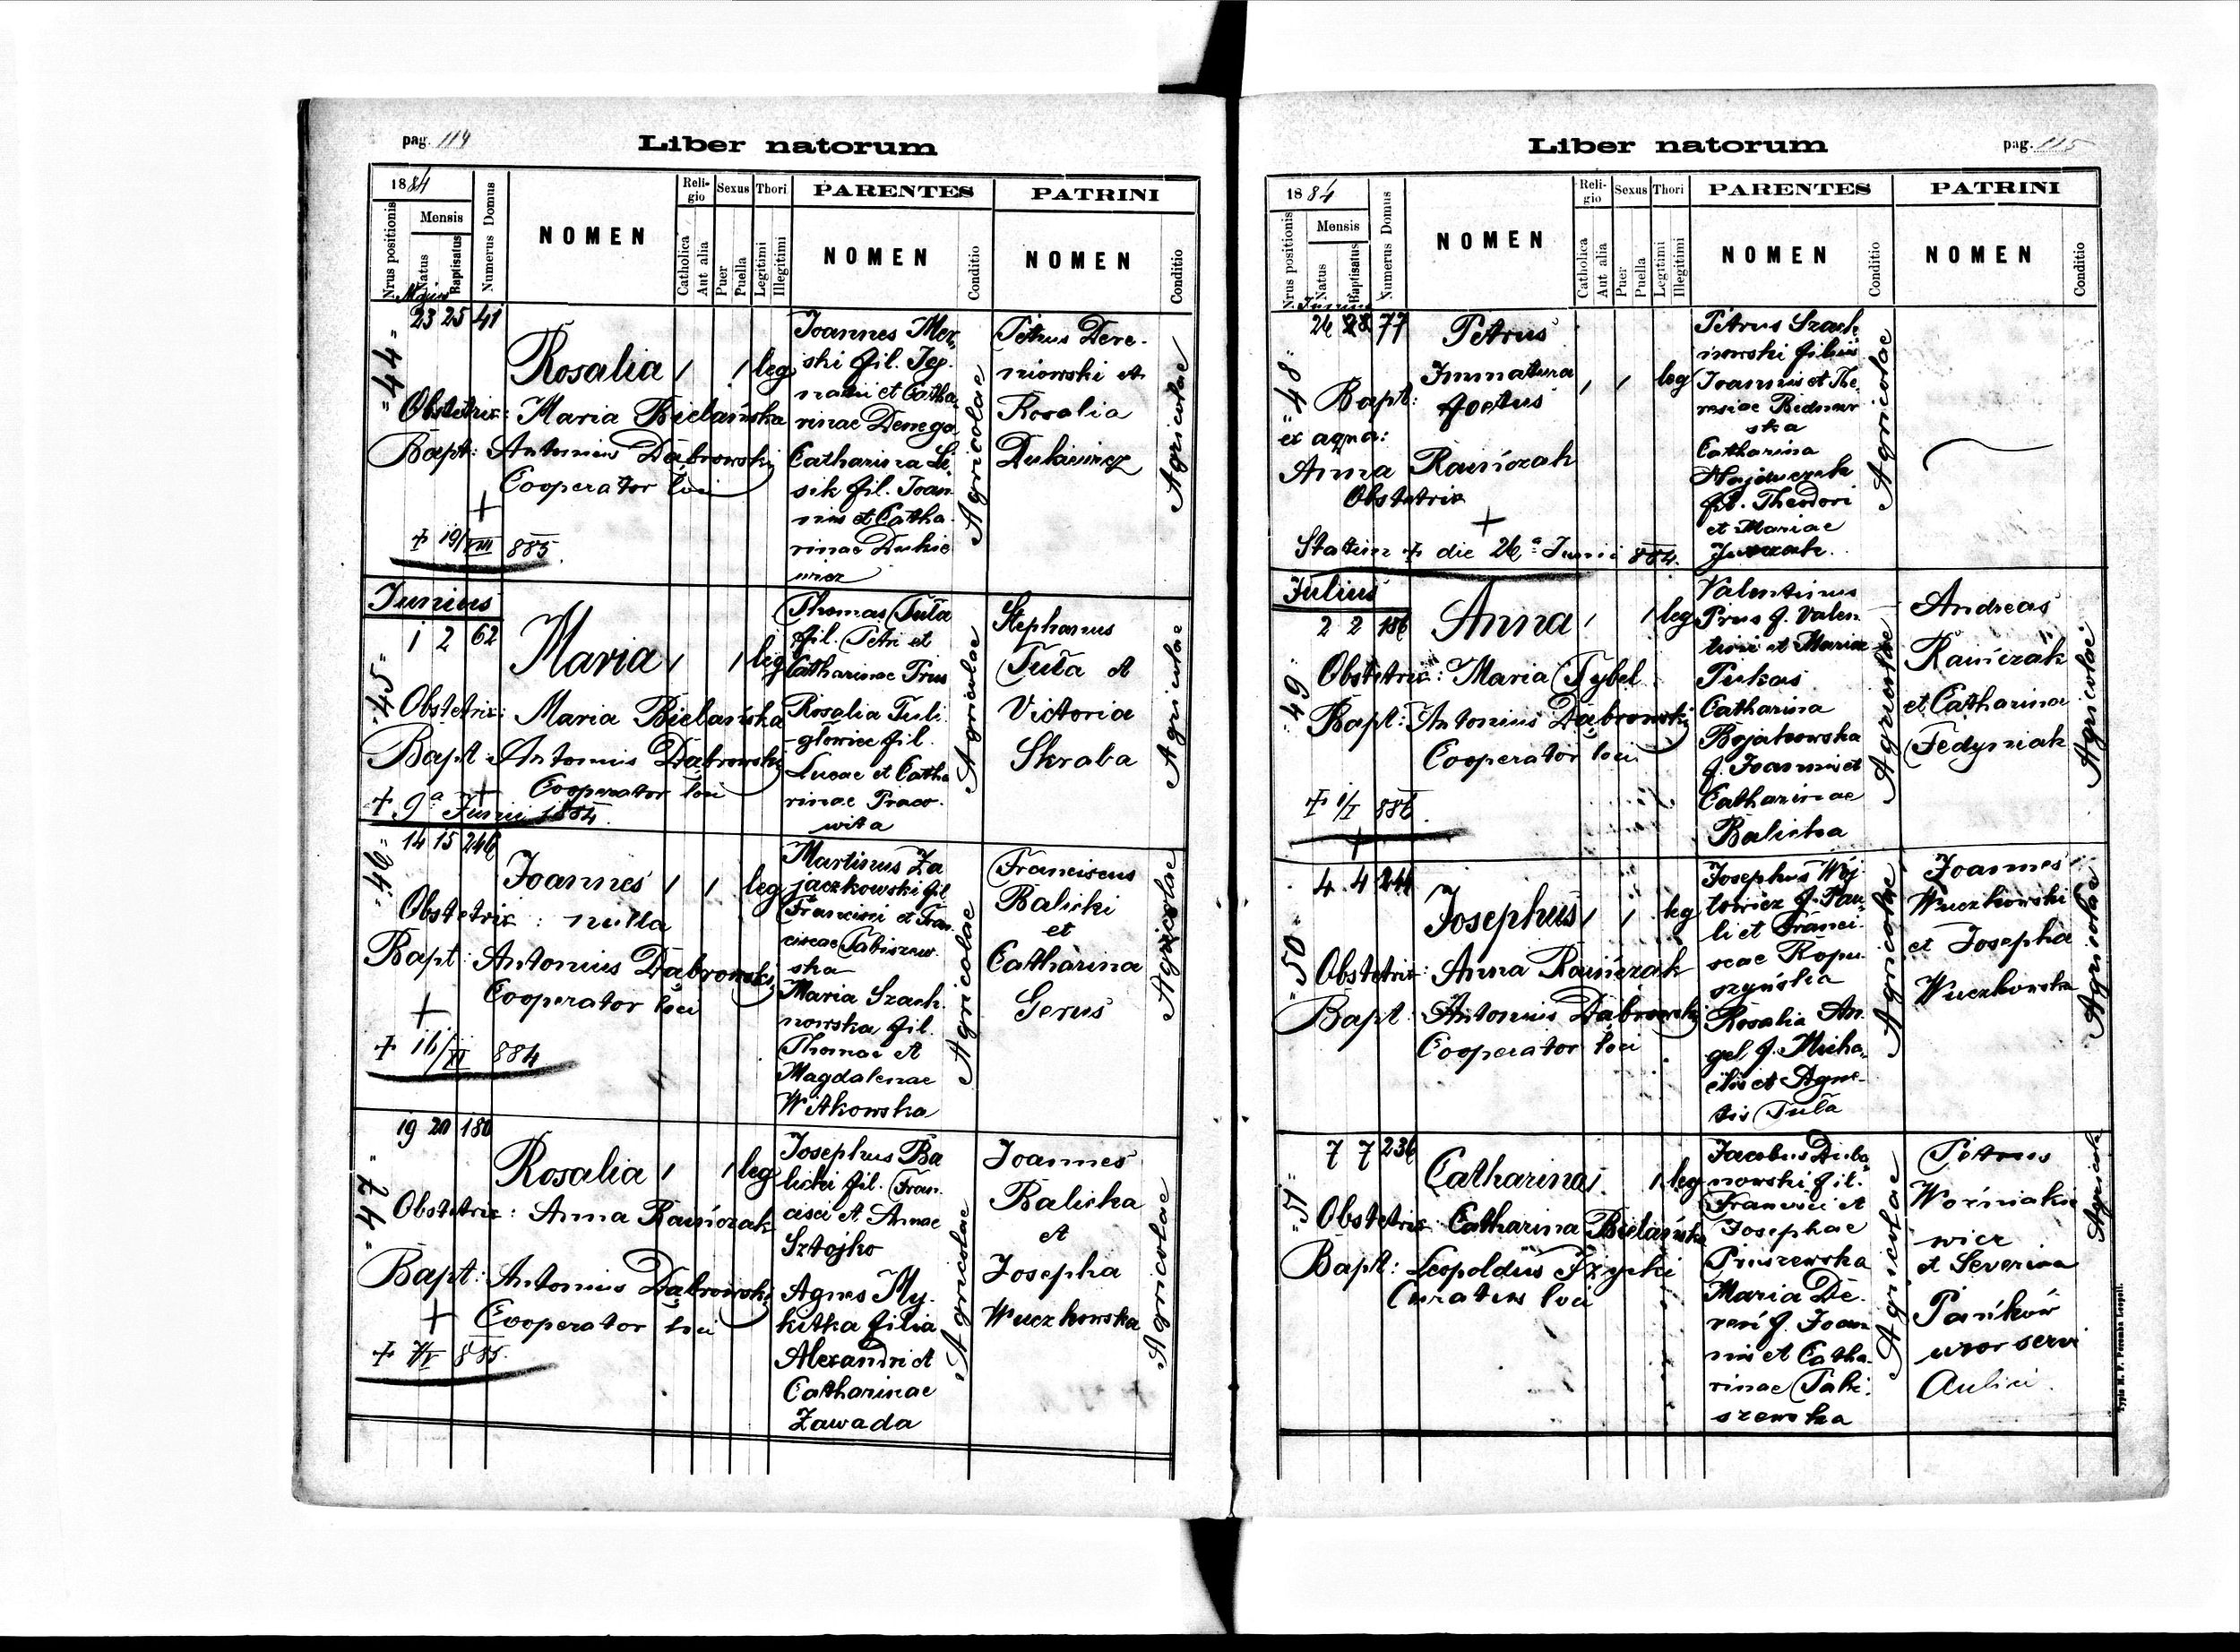 pag. 114
Liber natorum
1884
Nrus positionis
Mensis
Natus
Baptisatus
Numerus Domus
NOMEN
Religio
Catholica
Aut alia
Sexus
Puer
Puella
Thori
Legitimi
Illegitimi
PARENTES
NOMEN
Conditio
PATRINI
NOMEN
Conditio
"44"
Majus
23 25 41
Rosalia 1 1 leg
Obstetrix: Maria Bielańska
Bapt: Antonius Dąbrowski
Cooperator loci
+
+ 19/VIII 885.
Joannes Mer
ski fil. Ig
natii et Catha
rinae Denega
Catharina Li
sik fil. Joan
nis et Catha
rinae Dukie
wicz
Agricolae
Petrus Dere
niowski et
Rosalia
Dukiewicz
Agricolae
Junius
"45"
1 2 62
Maria 1 1 leg
Obstetrix: Maria Bielańska
Bapt: Antonius Dąbrowski
Cooperator loci
+
+ 9a Junii 1884.
Thomas Tuła
fil. Petri et
Catharinae Prus
Rosalia Tuli
głowicz fil.
Lucae et Catha
rinae Praco
wita
Agricolae
Stephanus
Tuła et
Victoria
Skraba
Agricolae
"46"
14 15 246
Joannes 1 1 leg
Obstetrix: nulla
Bapt: Antonius Dąbrowski
Cooperator loci
+
+ 16/XI 884
Martinus Za
jączkowski fil
Francisci et Fran
ciscae Tabiszew
ska
Maria Szach
nowska fil.
Thomae et
Magdalenae
Witkowska
Agricolae
Franciscus
Balicki
et
Catharina
Gerus
Agricolae
"47"
19 20 180
Rosalia 1 1 leg
Obstetrix: Anna Rańczak
Bapt: Antonius Dąbrowski
Cooperator loci
+
+ 885.
Josephus Ba
licki fil. Fran
cisci et Annae
Sztojko
Agnes My
kitka filia
Alexandri et
Catharinae
Zawada
Agricolae
Joannes
Balicka
et
Josepha
Wuczkowska
Agricolae
Liber natorum
pag. 115
1884
Nrus positionis
Mensis
Natus
Baptisatus
Numerus Domus
NOMEN
Religio
Catholica
Aut alia
Sexus
Puer
Puella
Thori
Legitimi
Illegitimi
PARENTES
NOMEN
Conditio
PATRINI
NOMEN
Conditio
"48"
Junius
26 28 77
Petrus
Immatura
foetus 1 1 leg
Bapt:
ex aqua:
Anna Rańczak
Obstetrix
+
Statim + die 26a Junii 884.
Petrus Szach
nowski filius
Joannis et The
resiae Bednar
ska
Catharina
Hajduczak
fil. Theodori
et Mariae
Agricolae
Julius
"49"
2 2 186
Anna 1 1 leg
Obstetrix: Maria Tybel
Bapt: Antonius Dąbrowski
Cooperator loci
+ 1/I 886.
+
Valentinus
Prus f. Valen
tini et Mariae
Pukas
Catharina
Bojakowska
f. Joannis et
Catharinae
Balicka
Agricolae
Andreas
Rańczak
et Catharina
Fedyniak
Agricolae
"50"
4 4 244
Josephus 1 1 leg
Obstetrix: Anna Rańczak
Bapt: Antonius Dąbrowski
Cooperator loci
Josephus Woj
towicz f. Pau
li et Franci
scae Ropu
szyńska
Rosalia An
gel f. Micha
elis et Agne
tis Tuła
Agricolae
Joannes
Wuczkowski
et Josepha
Wuczkowska
Agricolae
"51"
7 7 236
Catharina 1 1 leg
Obstetrix: Catharina Bielańska
Bapt: Leopoldus Iżycki
Curatus loci
Jacobus Duba
nowski fil.
Francisci et
Josephae
Pruszewska
Maria De
reń f. Joan
nis et Catha
rinae Tabi
szewska
Agricolae
Petrus
Woźniakie
wicz
et Severina
Pańków
uxor servi
Aulici.
Agricolae